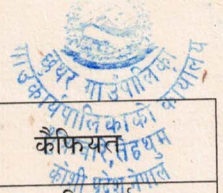 छथर गाउँपालिका
गाउँकार्यपालिकाको कार्यालय
कैफियत
तेह्रथुम
कोशी प्रदेश नेपाल